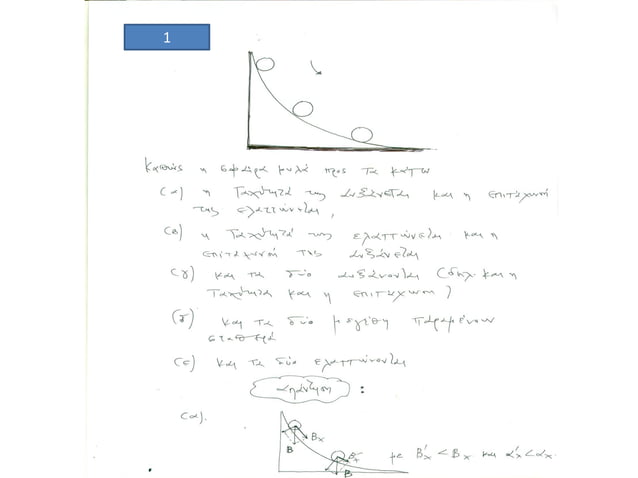 1
Καθώς η σφαίρα κυλά προς τα κάτω
(α) η ταχύτητά της αυξάνεται και η επιτάχυνσή
της ελαττώνεται,
(β) η ταχύτητά της ελαττώνεται και η
επιτάχυνσή της αυξάνεται
(γ) και τα δύο αυξάνονται (δηλ. και η
ταχύτητα και η επιτάχυνση)
(δ) και τα δύο μεγέθη παραμένουν
σταθερά
(ε) και τα δύο ελαττώνονται
απάντηση :
(α).
Bx
B
B'x
B
με B'x < Bx και α'x < αx.